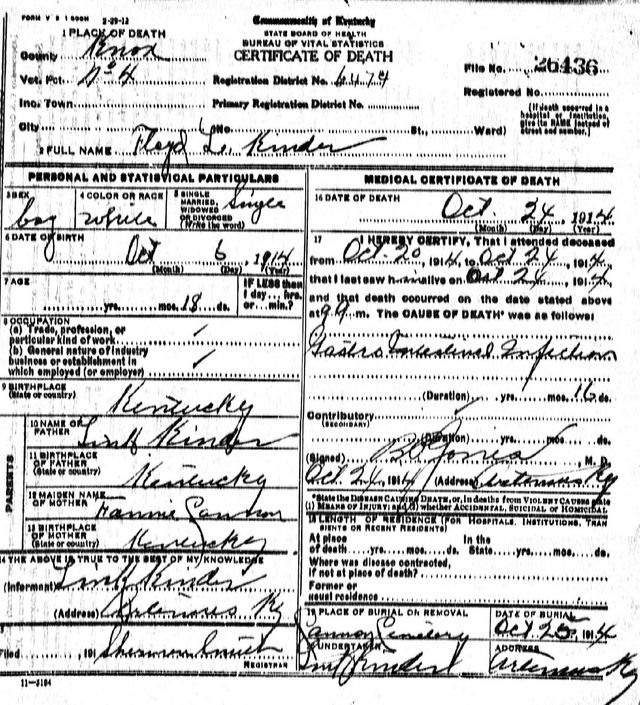 FORM V S 1 500M 2-29-12
Commonwealth of Kentucky
STATE BOARD OF HEALTH
BUREAU OF VITAL STATISTICS
CERTIFICATE OF DEATH
1 PLACE OF DEATH
County Knox
Vot. Pct. No 4
Inc. Town
City
Registration District No.
Primary Registration District No.
(No. St., Ward)
File No. 26436
Registered No.
(If death occurred in a hospital or institution, give its NAME instead of street and number.)
2 FULL NAME Floyd L. Kinder
PERSONAL AND STATISTICAL PARTICULARS
3 SEX boy
4 COLOR OR RACE White
5 SINGLE MARRIED, WIDOWED OR DIVORCED (Write the word) Single
6 DATE OF BIRTH Oct 6, 1914
(Month) (Day) (Year)
7 AGE yrs. mos. 18 ds.
IF LESS than 1 day... hrs. or... min.?
8 OCCUPATION
(a) Trade, profession, or particular kind of work
(b) General nature of industry business or establishment in which employed (or employer)
9 BIRTHPLACE (State or country) Kentucky
PARENTS
10 NAME OF FATHER Link Kinder
11 BIRTHPLACE OF FATHER (State or country) Kentucky
12 MAIDEN NAME OF MOTHER Fannie Cannon
13 BIRTHPLACE OF MOTHER (State or country) Kentucky
14 THE ABOVE IS TRUE TO THE BEST OF MY KNOWLEDGE
(Informant) Link Kinder
(Address) Artemus Ky
Filed 191
REGISTRAR
11-3184
MEDICAL CERTIFICATE OF DEATH
16 DATE OF DEATH Oct. 24, 1914
(Month) (Day) (Year)
17 I HEREBY CERTIFY, That I attended deceased
from Oct 20, 1914, to Oct 24, 1914,
that I last saw h im alive on Oct 24, 1914,
and that death occurred on the date stated above
at m. The CAUSE OF DEATH* was as follows:
Gastro Intestinal Infection
(Duration) yrs. mos. 16 ds.
Contributory (SECONDARY)
(Duration) yrs. mos. ds.
(Signed) Jones, M. D.
Oct. 24, 1914 (Address) Artemus Ky
*State the DISEASE CAUSING DEATH, or, in deaths from VIOLENT CAUSES state
(1) MEANS OF INJURY; and (2) whether ACCIDENTAL, SUICIDAL OR HOMICIDAL
18 LENGTH OF RESIDENCE (FOR HOSPITALS, INSTITUTIONS, TRANSIENTS OR RECENT RESIDENTS)
At place of death yrs. mos. ds. In the State yrs. mos. ds.
Where was disease contracted, if not at place of death?
Former or usual residence
19 PLACE OF BURIAL OR REMOVAL Cannon Cemetery
DATE OF BURIAL Oct 25, 1914
20 UNDERTAKER Link Kinder
ADDRESS Artemus Ky